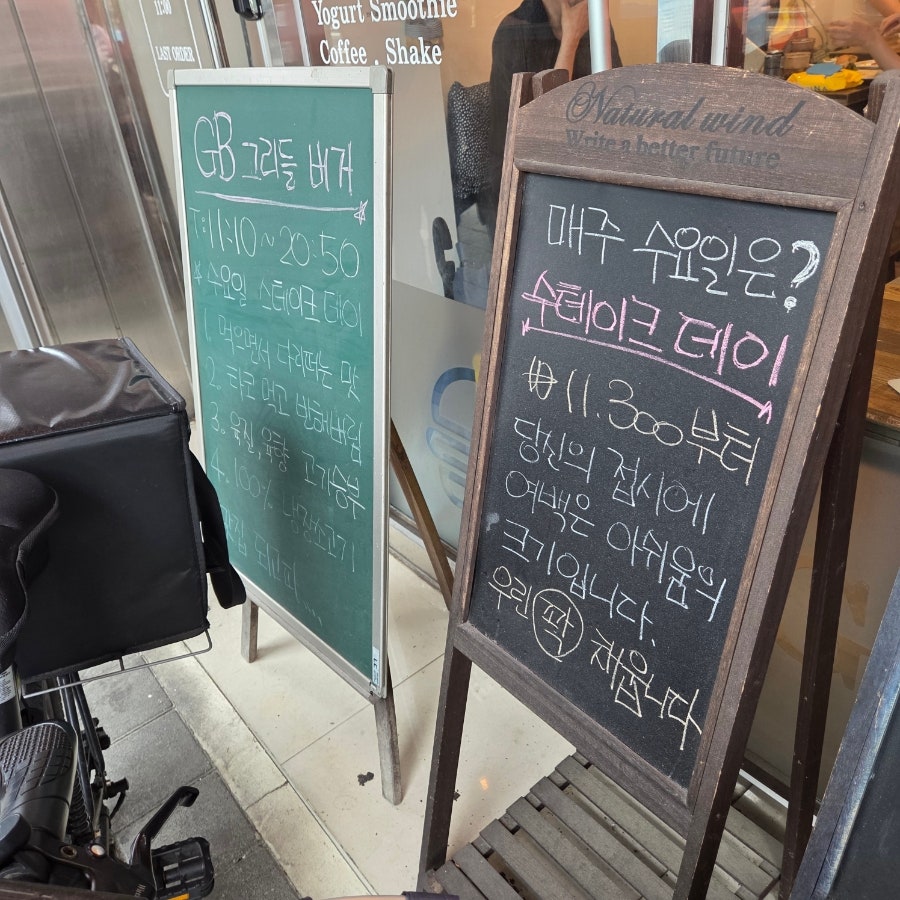 11:00
LAST ORDER
Yogurt Smoothie
Coffee . Shake
GB 그리들 버거
T:11:10 ~ 20:50
* 수요일 스테이크 데이
1. 먹으면서 다리떠는 맛
2. 타코 먹고 반해버림
3. 육질, 육향 고기승부
4. 100% 냉장소고기
Natural wind
Write a better future
매주 수요일은?
스테이크 데이
₩ 11.300부터
당신의 접시에
여백은 아쉬움의
크기입니다.
우린 꽉 채웁니다